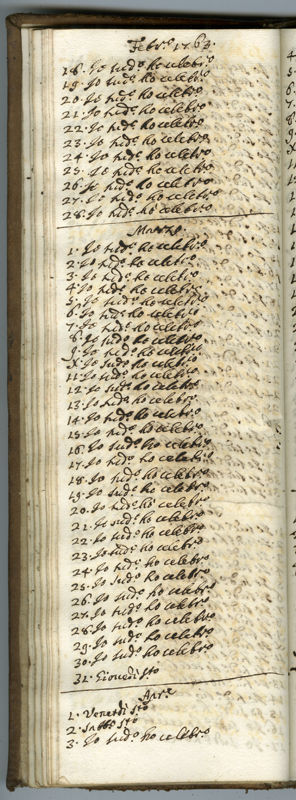 Febr.o 1763.
18. Io sud.o ho celebr.o
19. Io sud.o ho celebr.o
20. Io sud.o ho celebr.o
21. Io sud.o ho celebr.o
22. Io sud.o ho celebr.o
23. Io sud.o ho celebr.o
24. Io sud.o ho celebr.o
25. Io sud.o ho celebr.o
26. Io sud.o ho celebr.o
27. Io sud.o ho celebr.o
28. Io sud.o ho celebr.o
Marzo
1. Io sud.o ho celebr.o
2. Io sud.o ho celebr.o
3. Io sud.o ho celebr.o
4. Io sud.o ho celebr.o
5. Io sud.o ho celebr.o
6. Io sud.o ho celebr.o
7. Io sud.o ho celebr.o
8. Io sud.o ho celebr.o
9. Io sud.o ho celebr.o
X. Io sud.o ho celebr.o
11. Io sud.o ho celebr.o
12. Io sud.o ho celebr.o
13. Io sud.o ho celebr.o
14. Io sud.o ho celebr.o
15. Io sud.o ho celebr.o
16. Io sud.o ho celebr.o
17. Io sud.o ho celebr.o
18. Io sud.o ho celebr.o
19. Io sud.o ho celebr.o
20. Io sud.o ho celebr.o
21. Io sud.o ho celebr.o
22. Io sud.o ho celebr.o
23. Io sud.o ho celebr.o
24. Io sud.o ho celebr.o
25. Io sud.o ho celebr.o
26. Io sud.o ho celebr.o
27. Io sud.o ho celebr.o
28. Io sud.o ho celebr.o
29. Io sud.o ho celebr.o
30. Io sud.o ho celebr.o
31. Giovedi Sto
Apre
1. Venerdi Sto
2. Sabb.o Sto
3. Io sud.o ho celebr.o